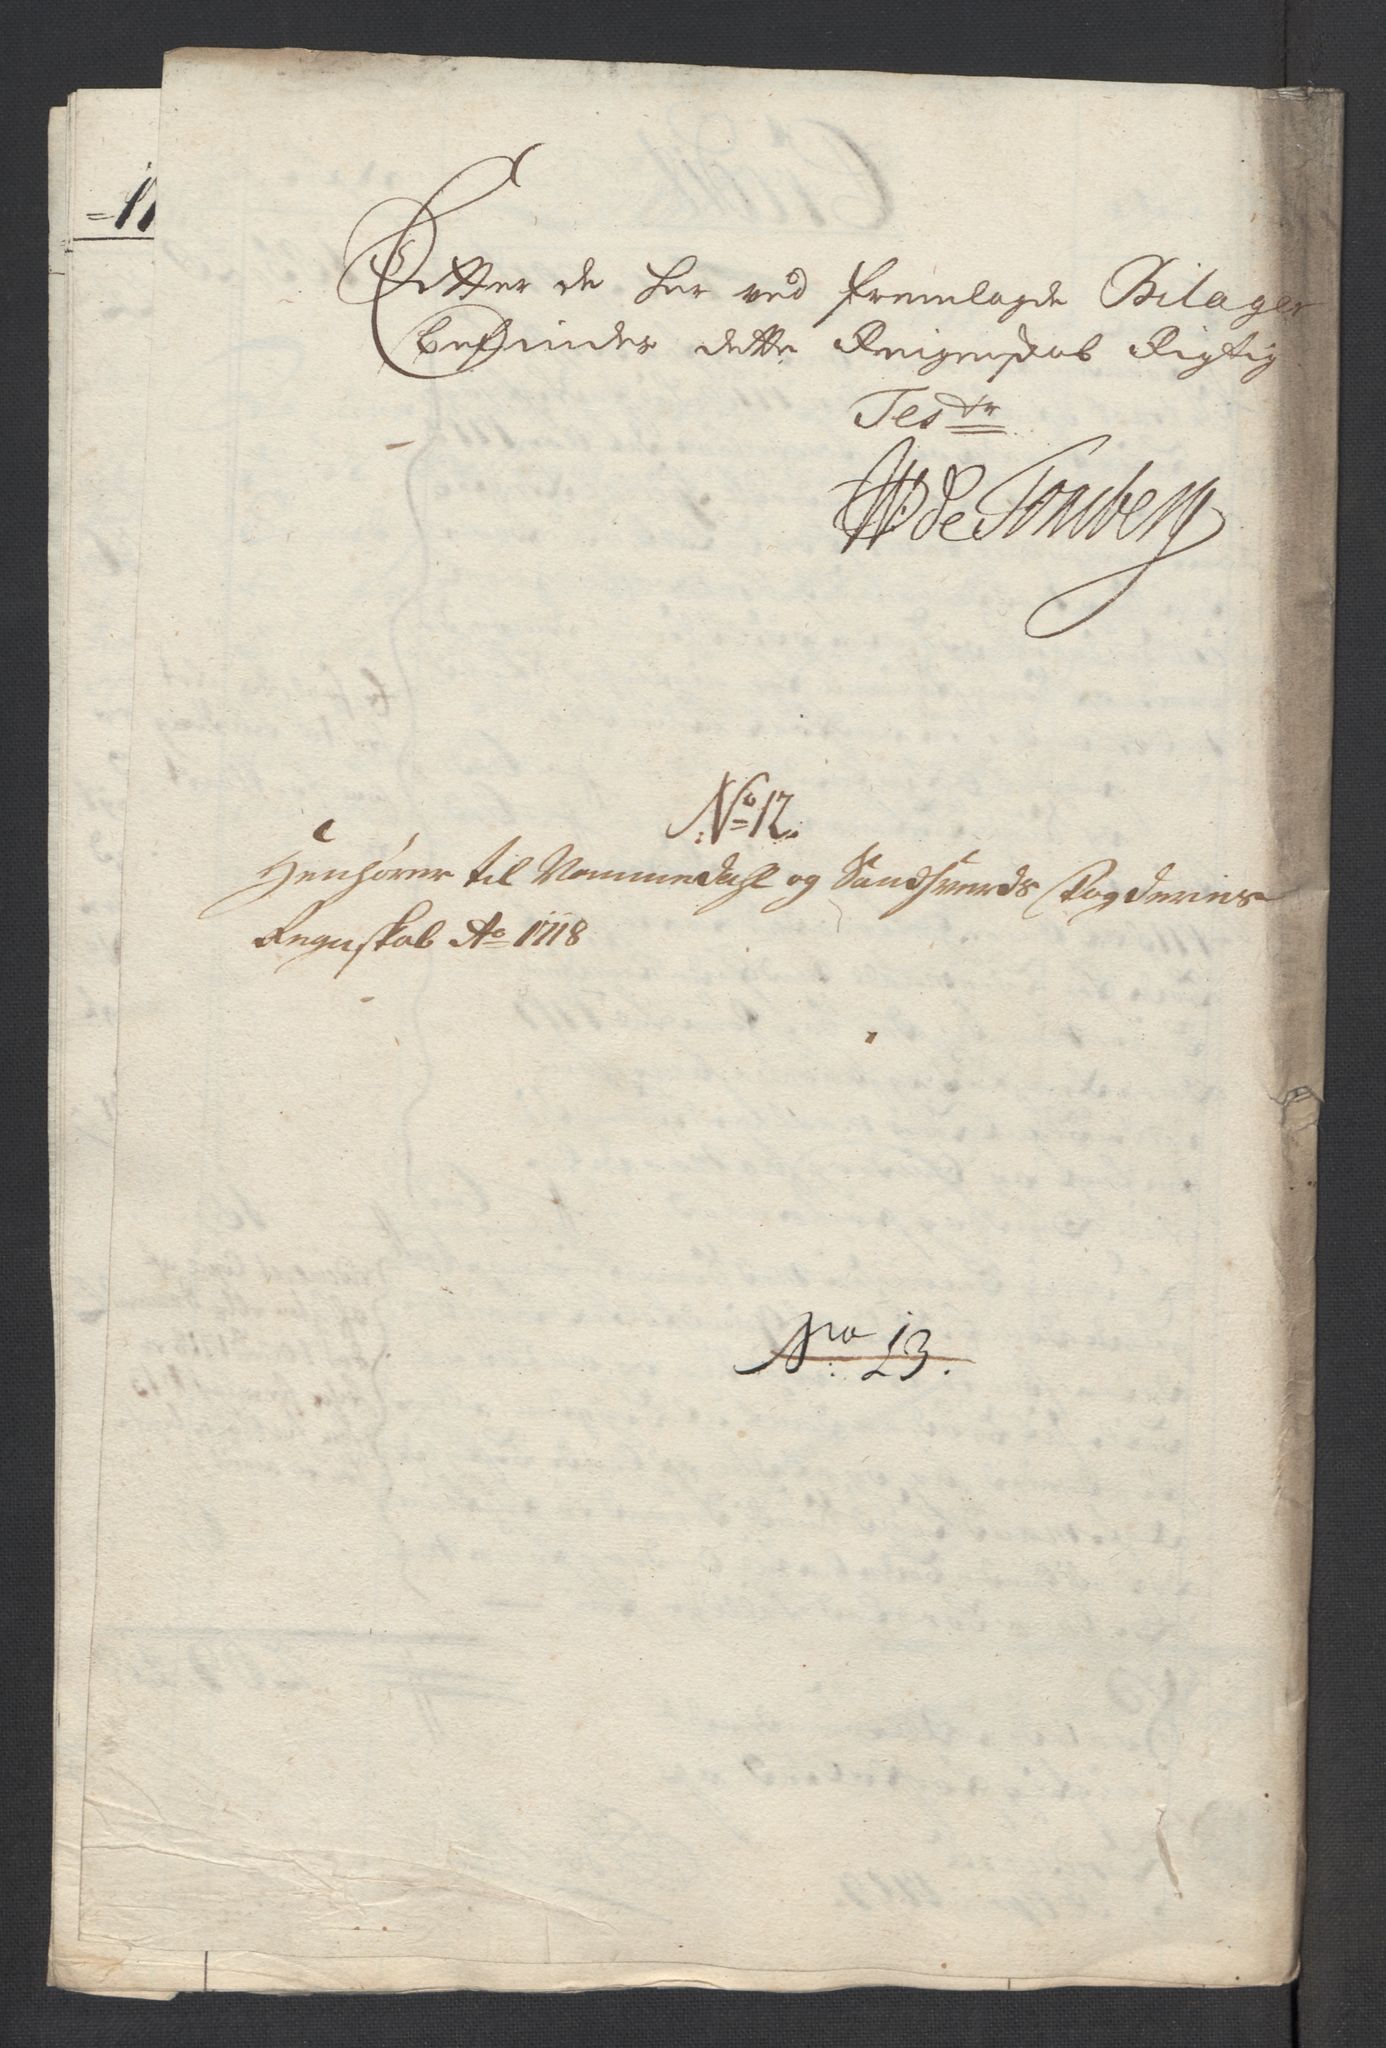 Efter de her ved fremlagde Bilager
befindes dette Reigenskab Rigtig
Test.
de Tonsberg
No 12.
Henhører til Nommedahl og Sandsverds Fogderies
Regnskab Ao 1718
No 13.